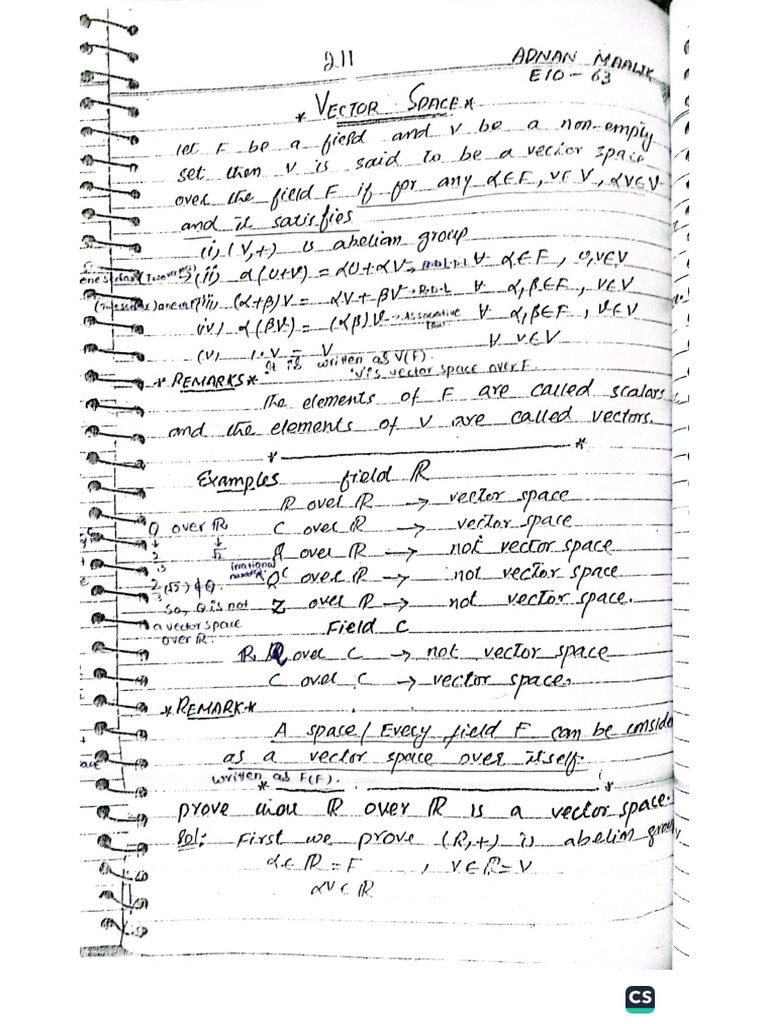 2.11
ADNAN MAALIK
E10-63
* VECTOR SPACE *
let F be a field and V be a non-empty
set then V is said to be a vector space
over the field F if for any α∈F, v∈V, αv∈V
and it satisfies
(i) (V,+) is abelian group
(ii) α(u+v) = αu+αv → ∀ α∈F, u,v∈V
(iii) (α+β)v = αv+βv → R.D.L ∀ α,β∈F, v∈V
(iv) α(βv) = (αβ)v → Associative law ∀ α,β∈F, v∈V
(v) 1.v = v ∀ v∈V
It is written as V(F).
V is vector space over F.
* REMARKS *
The elements of F are called scalars
and the elements of V are called vectors.
Examples field ℝ
ℝ over ℝ → vector space
C over ℝ → vector space
Q over ℝ → not vector space
irrational Qᶜ over ℝ → not vector space
Z over ℝ → not vector space.
Q over ℝ
↓ ↓
2/3 √2
2/3 (√2) ∉ Q.
so, Q is not
a vector space
over ℝ.
Field C
ℝ over C → not vector space
C over C → vector space.
* REMARK *
A space/ Every field F can be
as a vector space over itself.
written as F(F).
prove that ℝ over ℝ is a vector space.
Sol: First we prove (R,+) is abelian
α∈ℝ = F , v∈ℝ = V
αv∈ℝ
CS